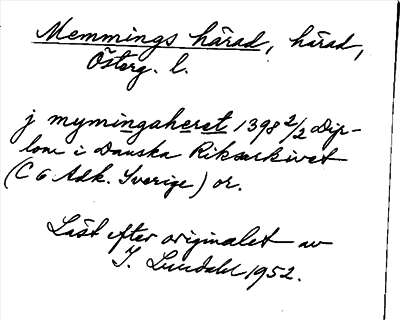 Memmings härad, härad,
Österg. l.
j mymingaheret 1398 2/2 Dip-
lom i Danska Riksarkivet
(C 6 Adk. Sverige) or.
Läst efter originalet av
J. Liedahl 1952.